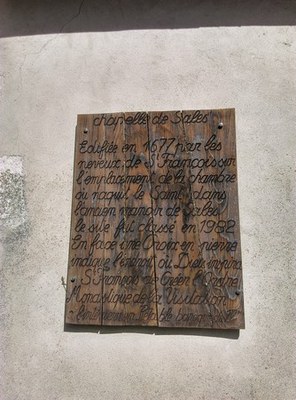 chapelle de Sales
Edifiée en 1677 par les
neveux de St François sur
l'emplacement de la chambre
où naquit le Saint dans
l'ancien manoir de Sales
le site fut classé en 1982
En face une Croix en pierre
indique l'endroit où Dieu inspira
St François de Créer l'Ordre
Monastique de la Visitation